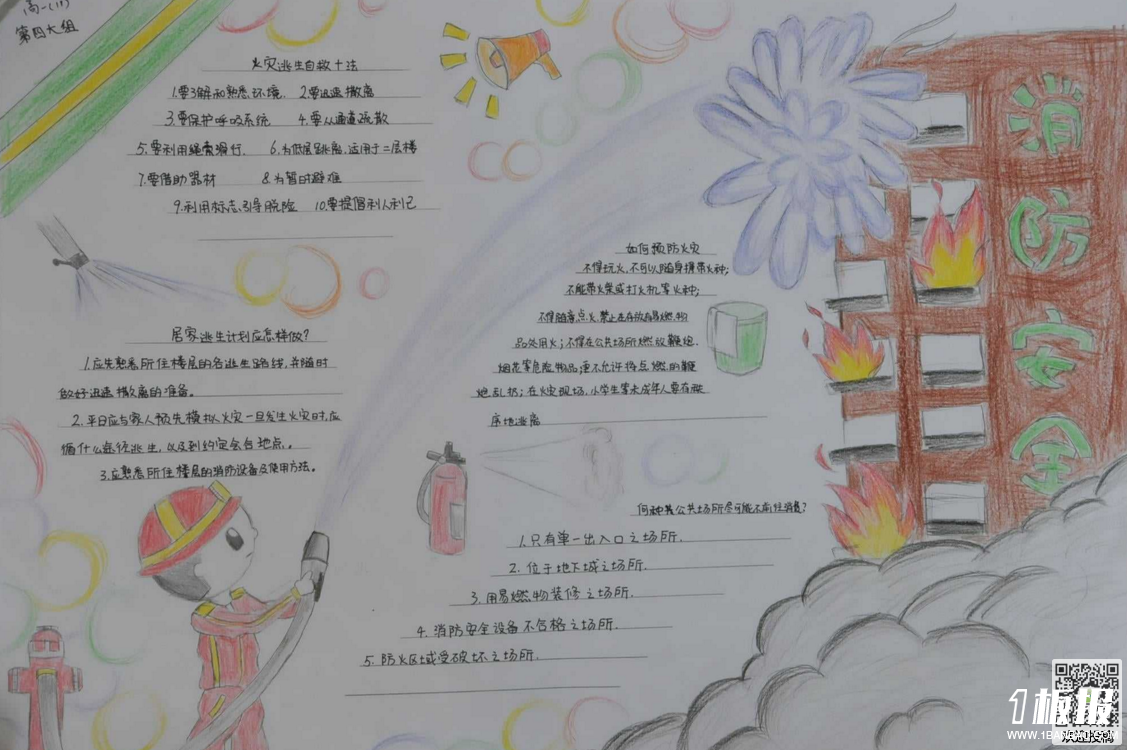 高一(11)
第四大组
火灾逃生自救十法
1.要了解和熟悉环境. 2.要迅速撤离
3.要保护呼吸系统 4.要从通道疏散
5.要利用绳索滑行. 6.为低层跳离,适用于二层楼
7.要借助器材 8.为暂时避难
9.利用标志引导脱险 10.要提倡利人利己
居家逃生计划应怎样做?
1.应先熟悉所住楼层的各逃生路线,并随时
做好迅速撤离的准备。
2.平日应与家人预先模拟火灾一旦发生火灾时,应
循什么途径逃生,以及到约定会合地点。
3.应熟悉所住楼层的消防设备及使用方法。
如何预防火灾
不得玩火,不可以随身携带火种;
不能带火柴或打火机等火种;
不得随意点火,禁止在存放易燃物
品处用火;不得在公共场所燃放鞭炮.
烟花等危险物品;更不允许将点燃的鞭
炮乱扔;在火灾现场,小学生等未成年人要有秩
序地逃离
何种类公共场所尽可能不前往消费?
1.只有单一出入口之场所.
2.位于地下城之场所.
3.用易燃物装修之场所.
4.消防安全设备不合格之场所.
5.防火区域受破坏之场所.
消防安全
1板报
WWW.1BANBAO.COM